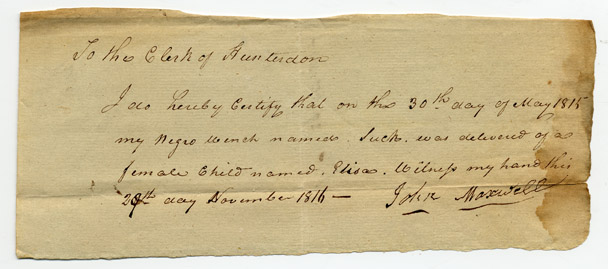 To the Clerk of Hunterdon
I do hereby Certify that on the 30th day of May 1815
my Negro Wench named. Suck. was delivered of a
female Child named. Elisa. Witness my hand this
29th day November 1816 —
John Maxwell